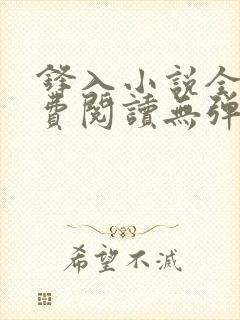 鋒入小说全
費閱讀無弹
希望不滅